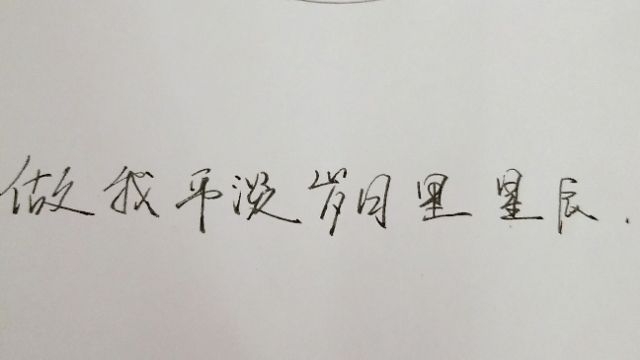 做我平淡岁月里星辰.